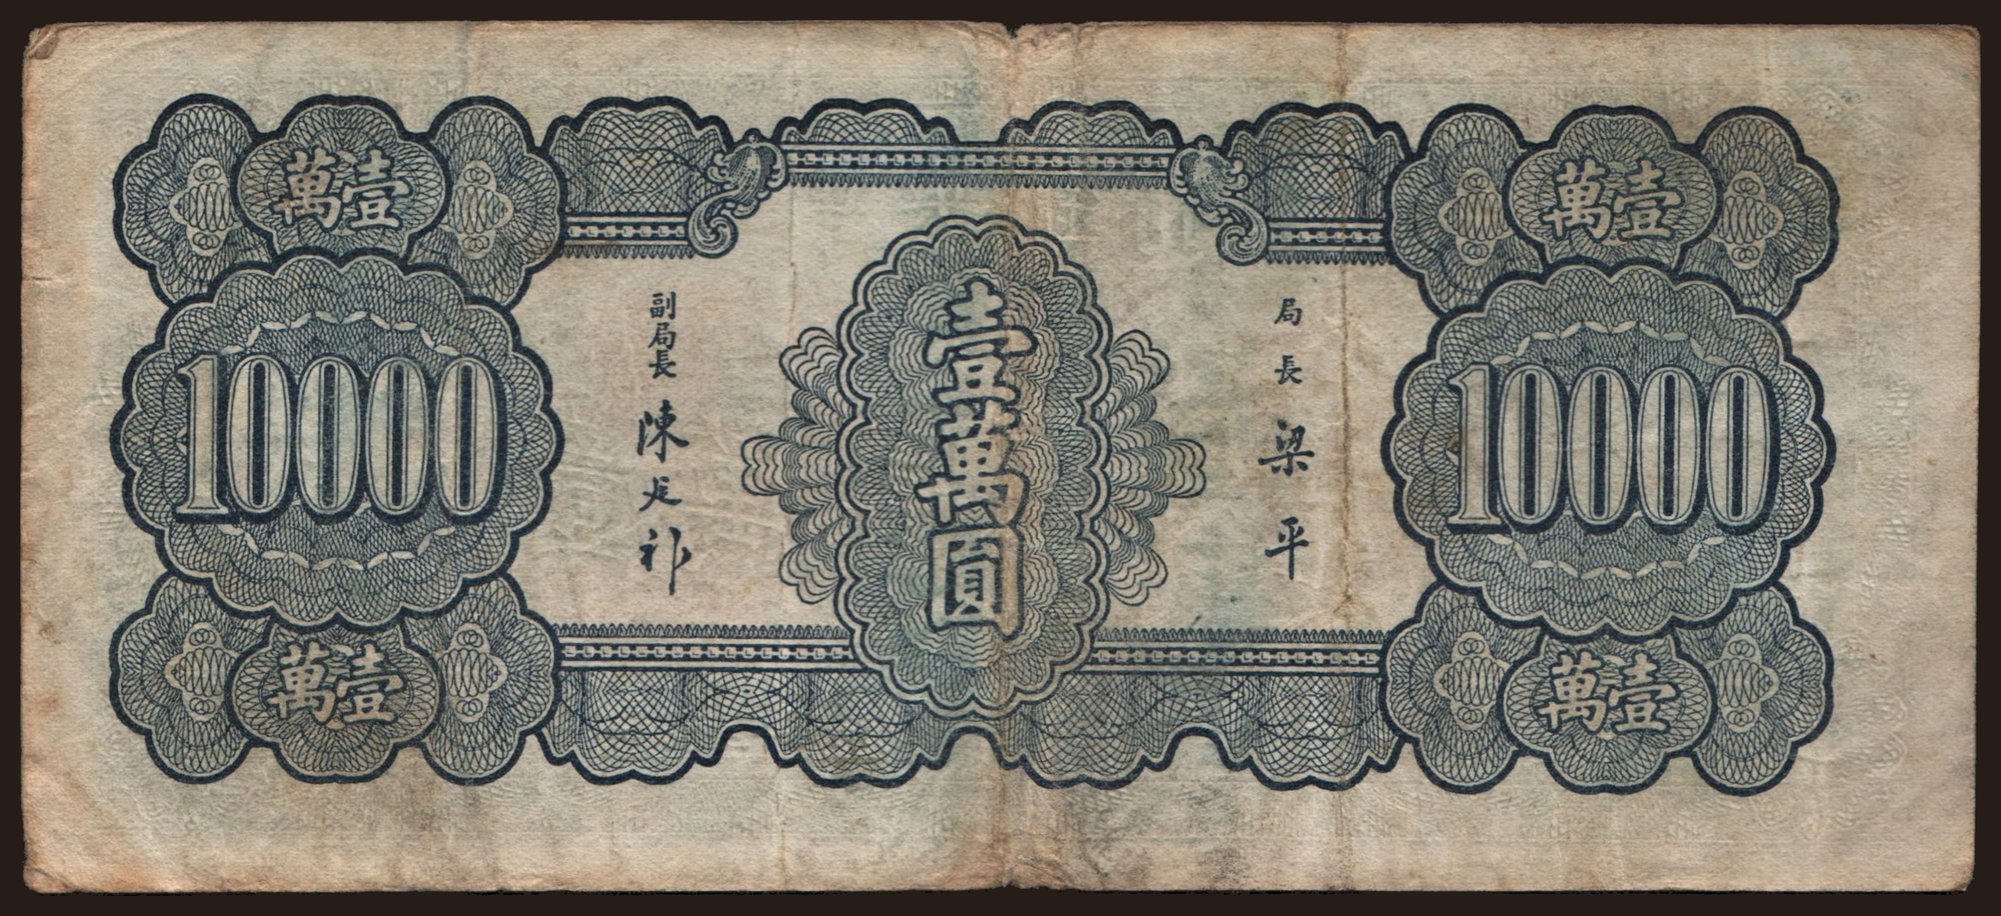 壹萬
壹萬
10000
10000
局長 梁平
壹萬圓
副局長 陳延祚
壹萬
壹萬